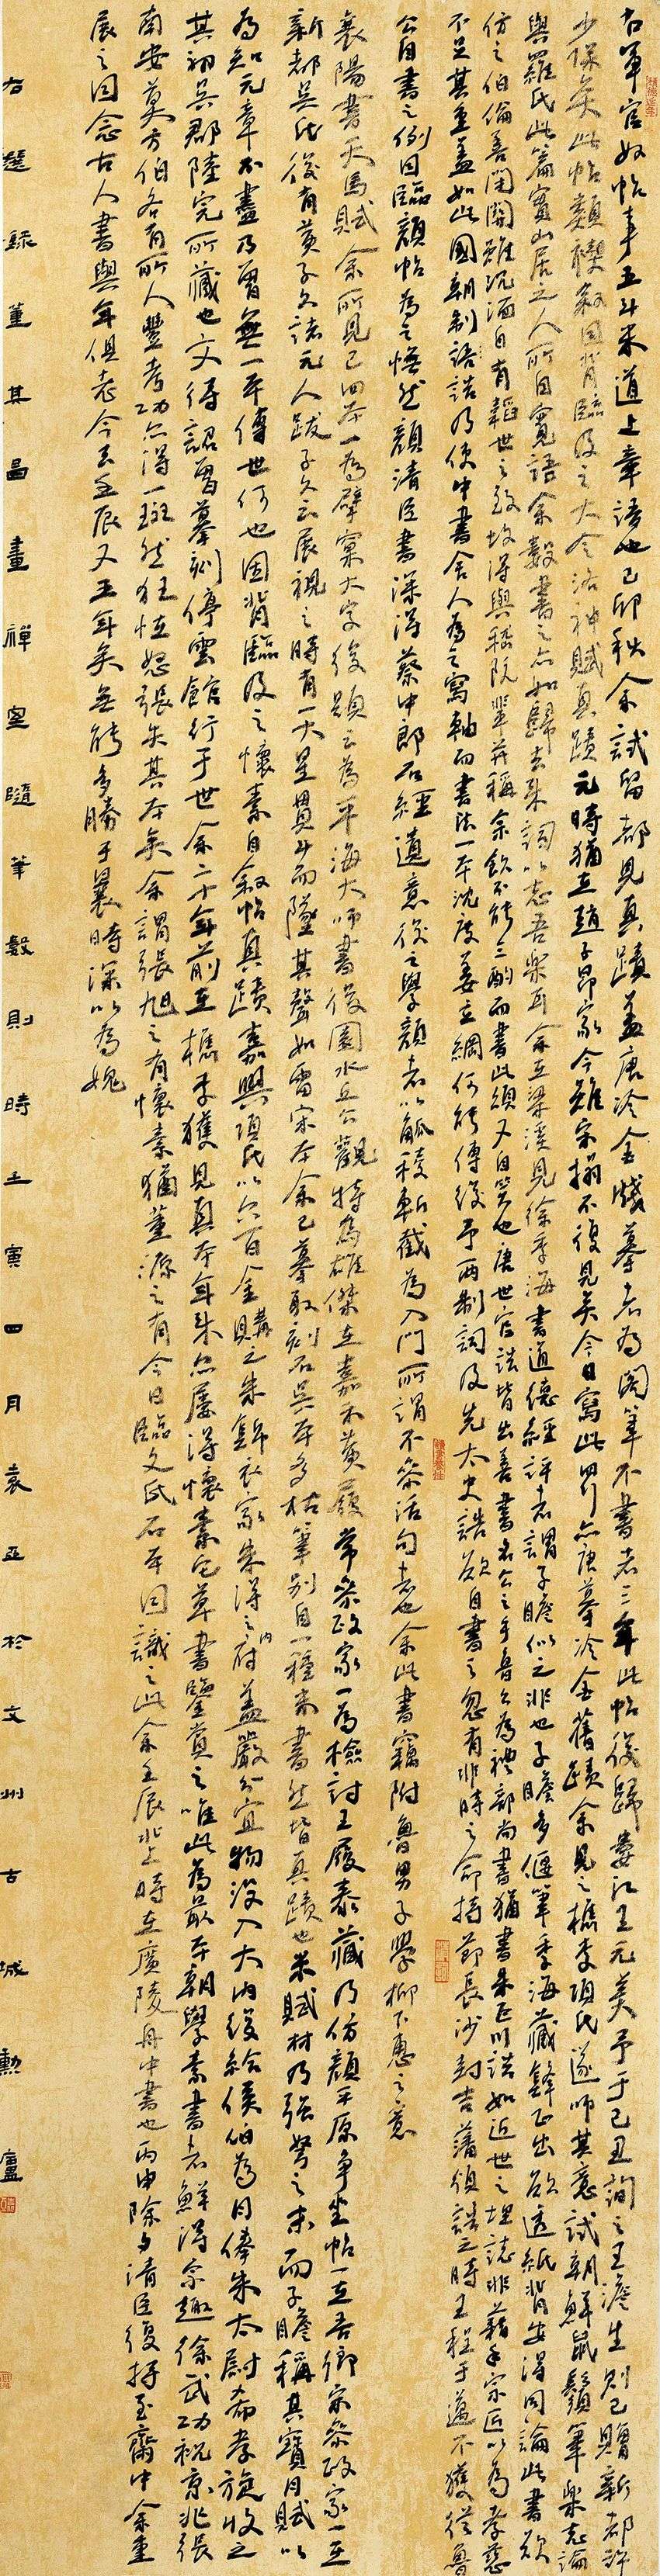 右軍官奴帖事五斗米道上章語也己卯秋余試留都見真蹟蓋唐冷金牋摹者為閣筆不書者三年此帖後歸婁江王元美予于己丑詢之王澹生則已贈新都許
少保矣此帖類禊敘因背臨及之大令洛神賦真蹟元時猶在趙子昂家今雖宋搨不復見矣今日寫此四行亦唐摹冷金舊蹟余見之檇李項氏遂師其意試朝鮮鼠鬚筆樂志論
與羅氏此篇實山居之人所自寬語余數書之亦如歸去來詞以志吾樂耳余在梁溪見徐季海書道德經評者謂子瞻似之非也子瞻多偃筆季海藏鋒正出欲透紙背安得同論此書欲
仿之伯倫善閉關雖沉湎自有韜世之致故得與嵇阮輩並稱余飲不能三酌而書此頌又自笑也唐世官誥皆出善書名公之手魯公為禮部尚書猶書朱巨川誥如近世之埋誌非藉手宗匠以為孝慈
不足其重蓋如此國朝制語誥乃使中書舍人為之寫軸而書法一本沈度姜立綱何能傳後予兩制詞及先太史誥欲自書之忽有非時之命持節長沙封吉藩領誥之時王程于邁不獲從魯
公自書之例因臨顏帖為之慨然顏清臣書深得蔡中郎石經遺意後之學顏者以觚稜斬截為入門所謂不參活句者也余此書竊附魯男子學柳下惠之意
襄陽書天馬賦余所見已四本一為擘窠大字後題云為平海大師書後園水丘公觀特為雄傑在嘉禾黃履常參政家一為檢討王履泰藏乃仿顏平原爭坐帖一在吾鄉宋參政家一在
新都吳氏後有黃子久諸元人跋子久云展視之時有一大星貫斗而墜其聲如雷宋本余已摹取刻石吳本多枯筆別自一種米書然皆真蹟也米賦材乃強弩之末而子瞻稱其寶月賦以
為知元章不盡乃曾無一本傳世何也因背臨及之懷素自敘帖真蹟嘉興項氏以六百金購之朱錦衣家朱得之內府蓋嚴分宜物沒入大內後給侯伯為月俸朱太尉希孝旋收之
其初吳郡陸完所藏也文待詔曾摹刻停雲館行于世余二十年前在檇李獲見真本年來亦屢得懷素它草書鑒賞之唯此為最本朝學素書者鮮得宗趣徐武功祝京兆張
南安莫方伯各有所入豐考功亦得一斑然狂怪怒張失其本矣余謂張旭之有懷素猶董源之有今日臨文氏石本因識之此余壬辰北上時在廣陵舟中書也丙申除夕清臣復持至齋中余重
展之因念古人書與年俱老今去壬辰又五年矣無能多勝于曩時深以為媿
右選錄董其昌畫禪室隨筆數則時壬寅四月袁亞於文州古城勳廬